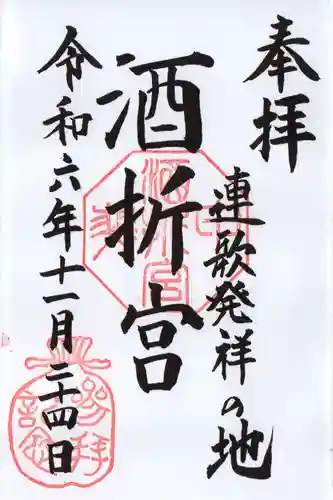 奉拝
連歌発祥の地
酒折宮
令和六年十一月二十四日
参拝
記念